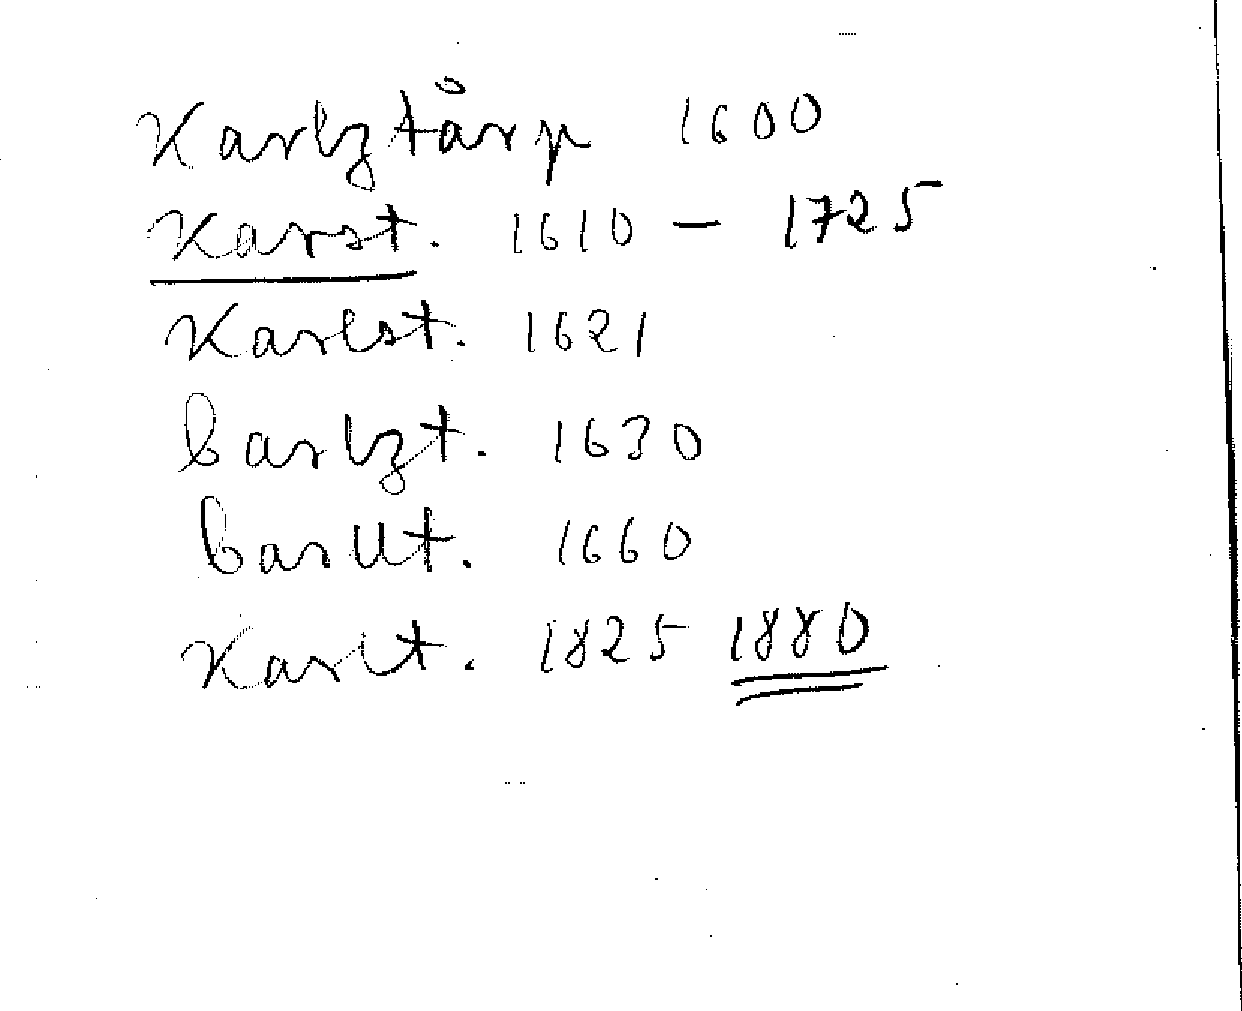 Karlztårp 1600
Karst. 1610 – 1725
Karlst. 1621
Carlzt. 1630
Carllt. 1660
Karlt. 1825 1880